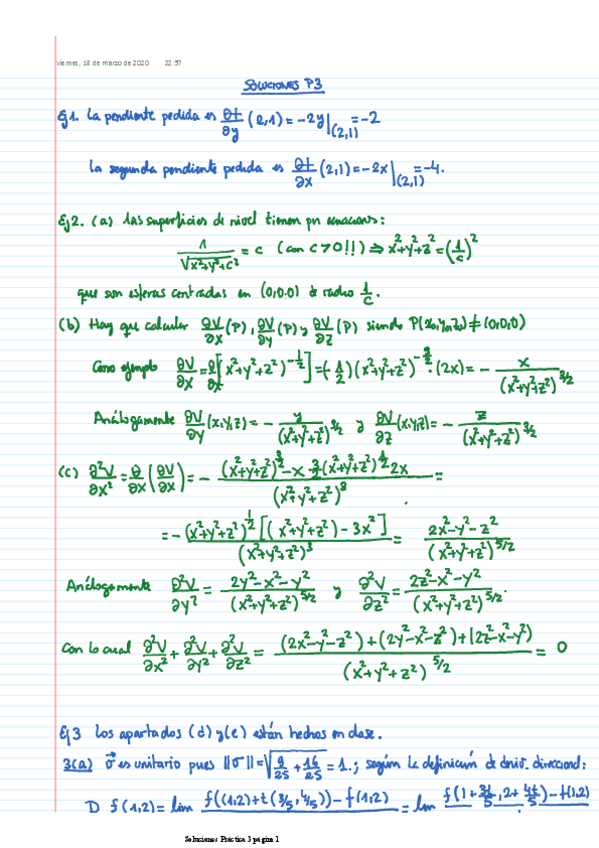 viernes, 13 de marzo de 2020 22:57
SOLUCIONES P3
Ej1. La pendiente pedida es ∂f/∂y (2,1) = -2y|(2,1) = -2
La segunda pendiente pedida es ∂f/∂x (2,1) = -2x|(2,1) = -4.
Ej2. (a) las superficies de nivel tienen por ecuaciones:
1/√(x²+y²+z²) = c (con c>0!!) ⇒ x²+y²+z² = (1/c)²
que son esferas centradas en (0,0,0) de radio 1/c.
(b) Hay que calcular ∂V/∂x (P), ∂V/∂y (P) y ∂V/∂z (P) siendo P(x₀,y₀,z₀) ≠ (0,0,0)
Como ejemplo ∂V/∂x = ∂/∂x [x²+y²+z²)^(-1/2)] = (-1/2)(x²+y²+z²)^(-3/2)·(2x) = - x/(x²+y²+z²)^(3/2)
Análogamente ∂V/∂y (x,y,z) = - y/(x²+y²+z²)^(3/2) y ∂V/∂z (x,y,z) = - z/(x²+y²+z²)^(3/2)
(c) ∂²V/∂x² = ∂/∂x (∂V/∂x) = - ((x²+y²+z²)^(3/2) - x·3/2(x²+y²+z²)^(1/2) 2x)/(x²+y²+z²)³ =
= - (x²+y²+z²)^(1/2) [(x²+y²+z²) - 3x²]/(x²+y²+z²)³ = (2x²-y²-z²)/(x²+y²+z²)^(5/2)
Análogamente ∂²V/∂y² = (2y²-x²-y²)/(x²+y²+z²)^(5/2) y ∂²V/∂z² = (2z²-x²-y²)/(x²+y²+z²)^(5/2).
Con lo cual ∂²V/∂x² + ∂²V/∂y² + ∂²V/∂z² = ((2x²-y²-z²)+(2y²-x²-z²)+(2z²-x²-y²))/(x²+y²+z²)^(5/2) = 0
Ej3 Los apartados (d) y (e) están hechos en clase.
3(a) v⃗ es unitario pues ||v|| = √(9/25 + 16/25) = 1.; según la definición de deriv. direccional:
D f(1,2) = lim f((1,2)+t(3/5,4/5)) - f(1,2) = lim f(1+3t/5, 2+4t/5) - f(1,2)
Soluciones Práctica 3 página 1